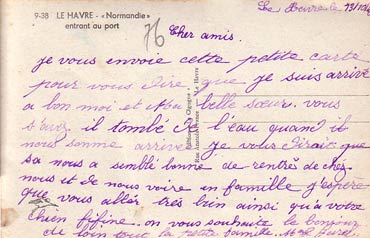 9-38 LE HAVRE - « Normandie »
entrant au port
76
Le Havre le 13/10
Cher amis.
je vous envoie cette petite carte
pour vous dire que je suis arrivé
a bon moi et belle sœur. vous
il tombé de l'eau quand il
nous somme arrivé je vous dirait que
sa nous a semblé bonne de rentrés de chez
nous et de nous voire en famille j'espère
que vous allér trés bien ainsi qu'a votre
chien fifine. on vous souhaite le bonjour
de loin tout la petite famille. Mme
Éditions "La Cigogne"
Le Havre